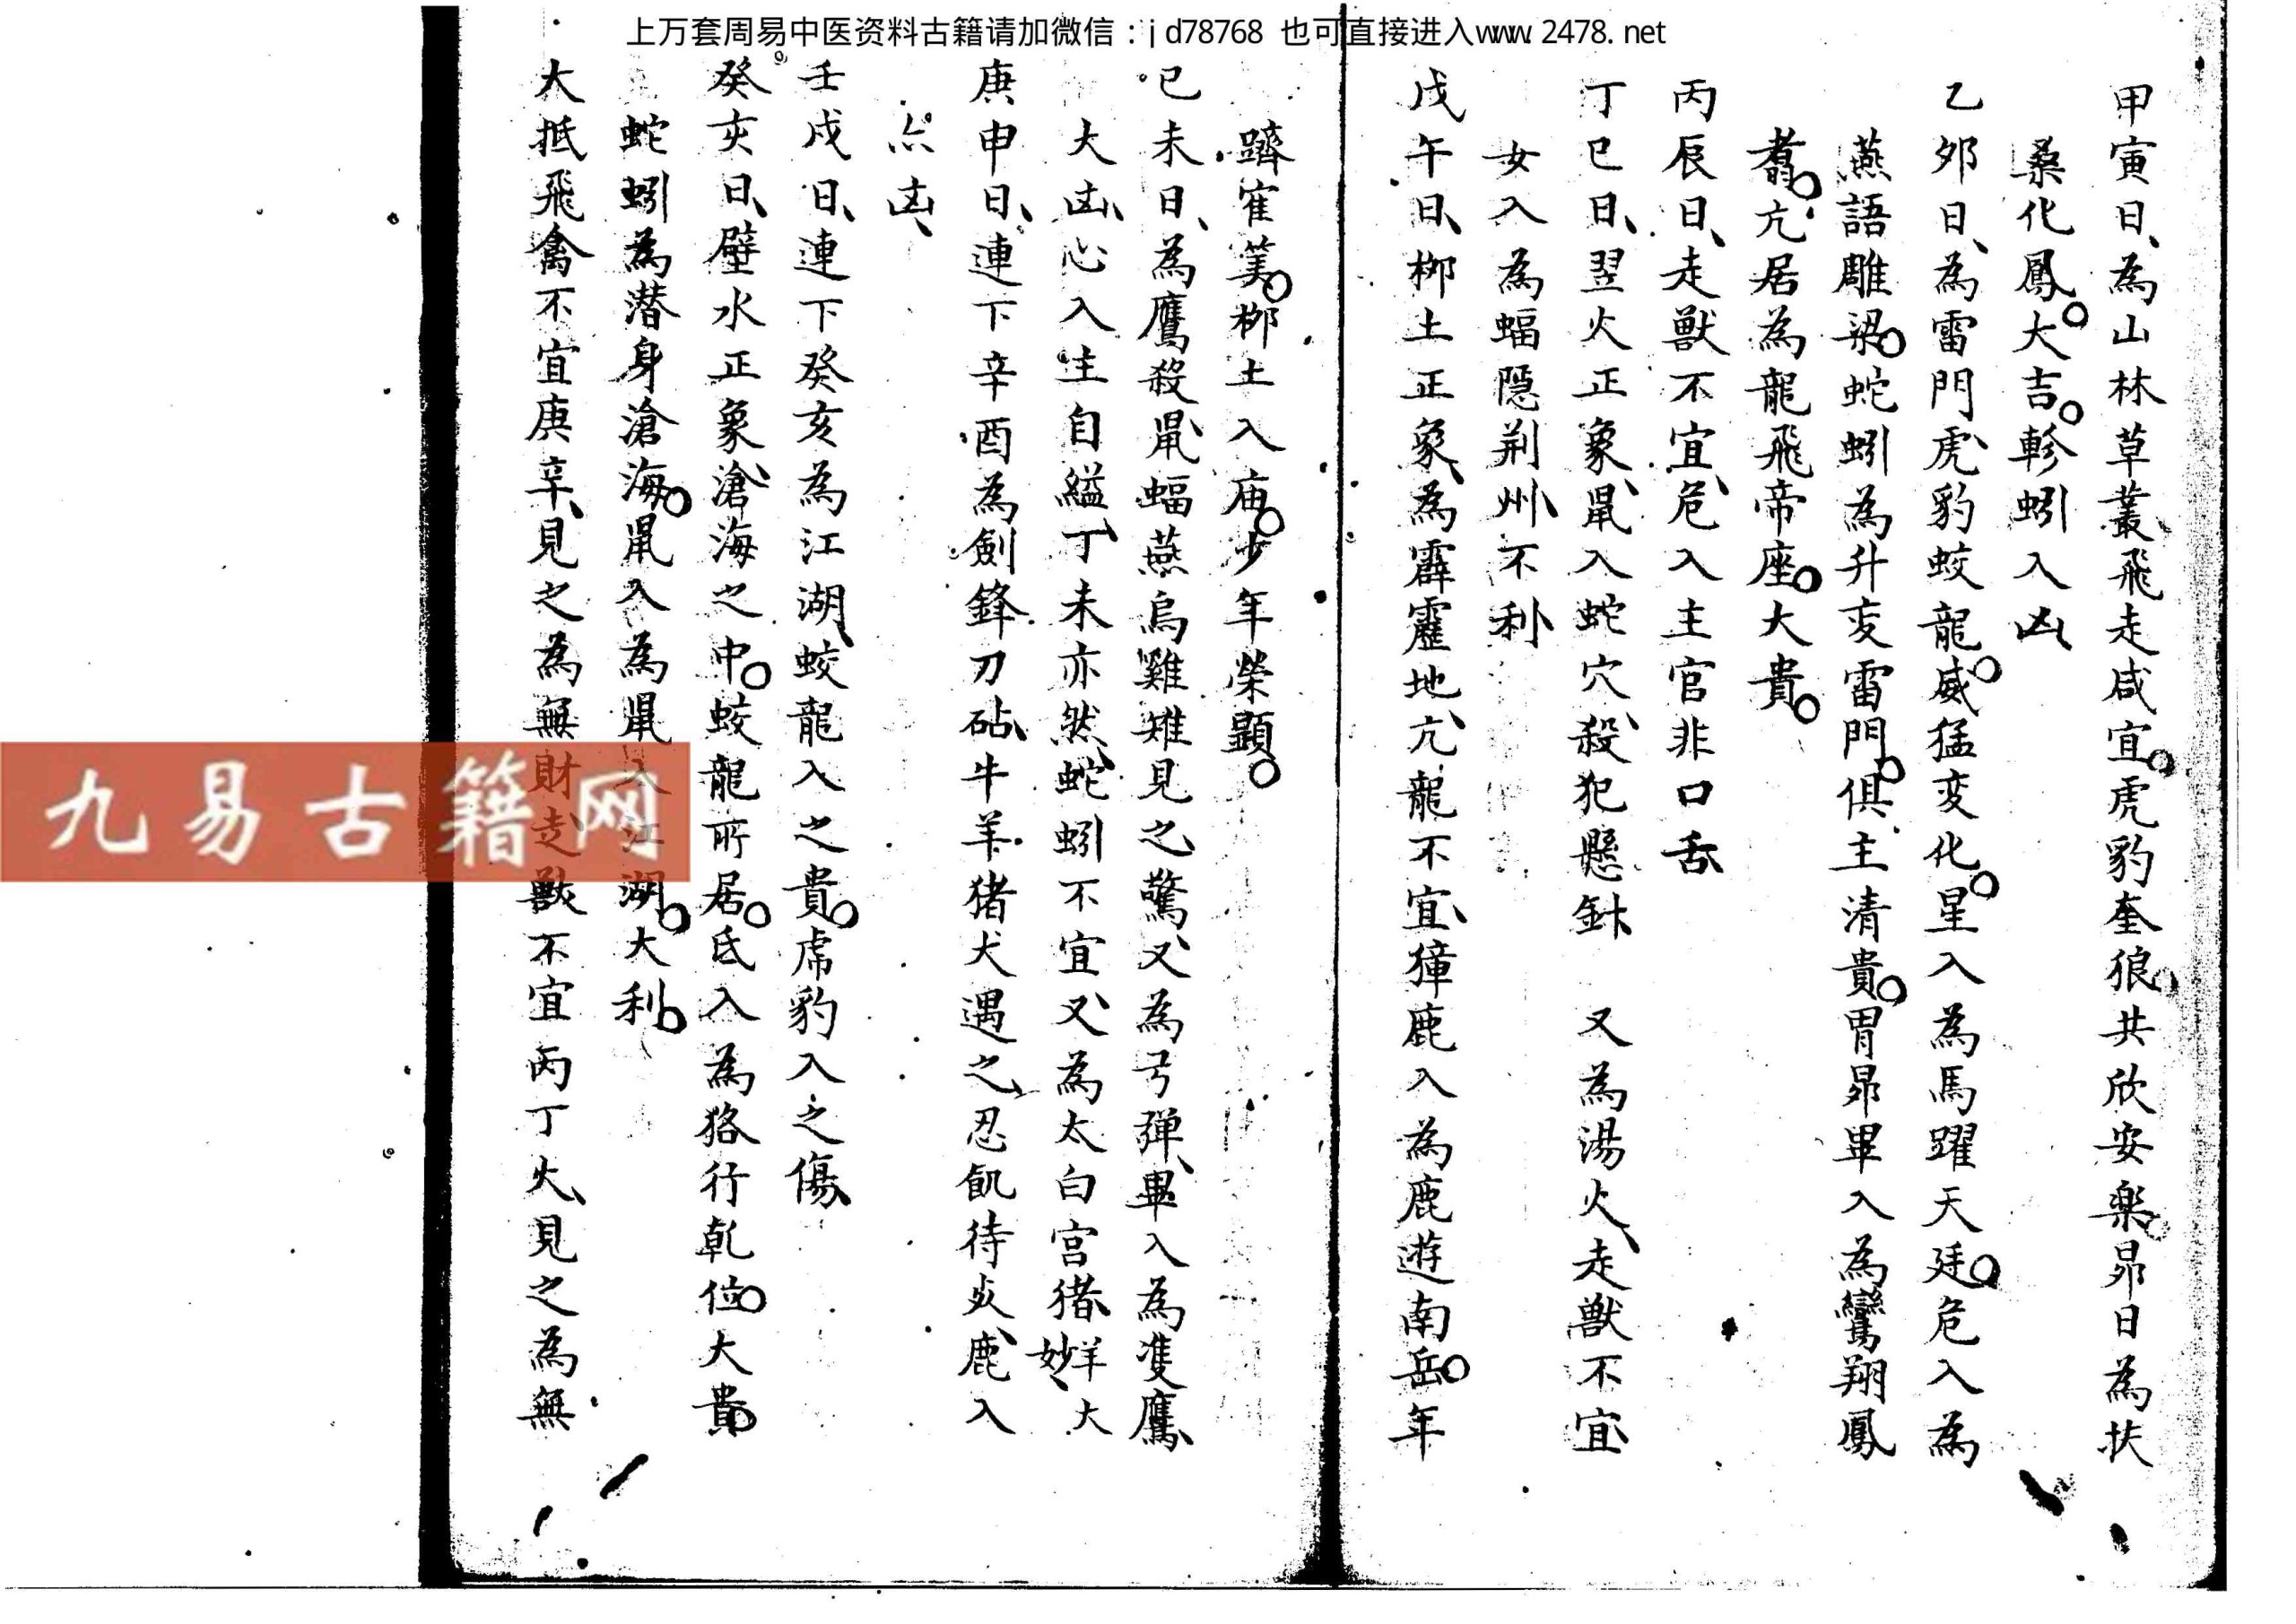 上万套周易中医资料古籍请加微信：jd78768 也可直接进入www.2478.net
甲寅日、為山林草叢飛走咸宜。虎豹奎狼。共欣安樂。昴日為扶
桑化鳳。大吉。軫蚓入凶、
乙夘日、為雷門、虎豹蛟龍。威猛変化。星入為馬躍天廷。危入為
燕語雕梁。蛇蚓為升変雷門。俱主清貴。胃昴畢入為鸞翔鳳
翥。亢居為龍飛帝座。大貴。
丙辰日、走獸不宜、危入主官非口舌、
丁巳日、翌火正象、鼠入蛇穴、殺犯懸針、又為湯火、走獸不宜、
女入為蝠隠荆州、不利、
戊午日、柳土正象、為霹靂地、亢龍不宜、獐鹿入為鹿遊南岳。年
躋寉筭。柳土入庙。少年榮顕。
已未日、為鷹殺鼠、蝠燕烏雞雉見之驚、又為弓彈、畢入為隻鷹、
大凶、心入生自縊、丁未亦然、蛇蚓不宜、又為太白宮、猪羊大妙、大
庚申日、連下辛酉為劍鋒刀砧、牛羊猪犬遇之、忍飢待㷊、鹿入
尒凶、
壬戌日、連下癸亥為江湖、蛟龍入之貴。虎豹入之傷、
癸亥日、壁水正象、滄海之中。蛟龍所居。氐入為狢行乾位。大貴。
蛇蚓為潜身滄海。鼠入為鼠入江湖。大利。
大抵飛禽不宜庚辛、見之為無財走獸不宜丙丁火、見之為無
九易古籍网